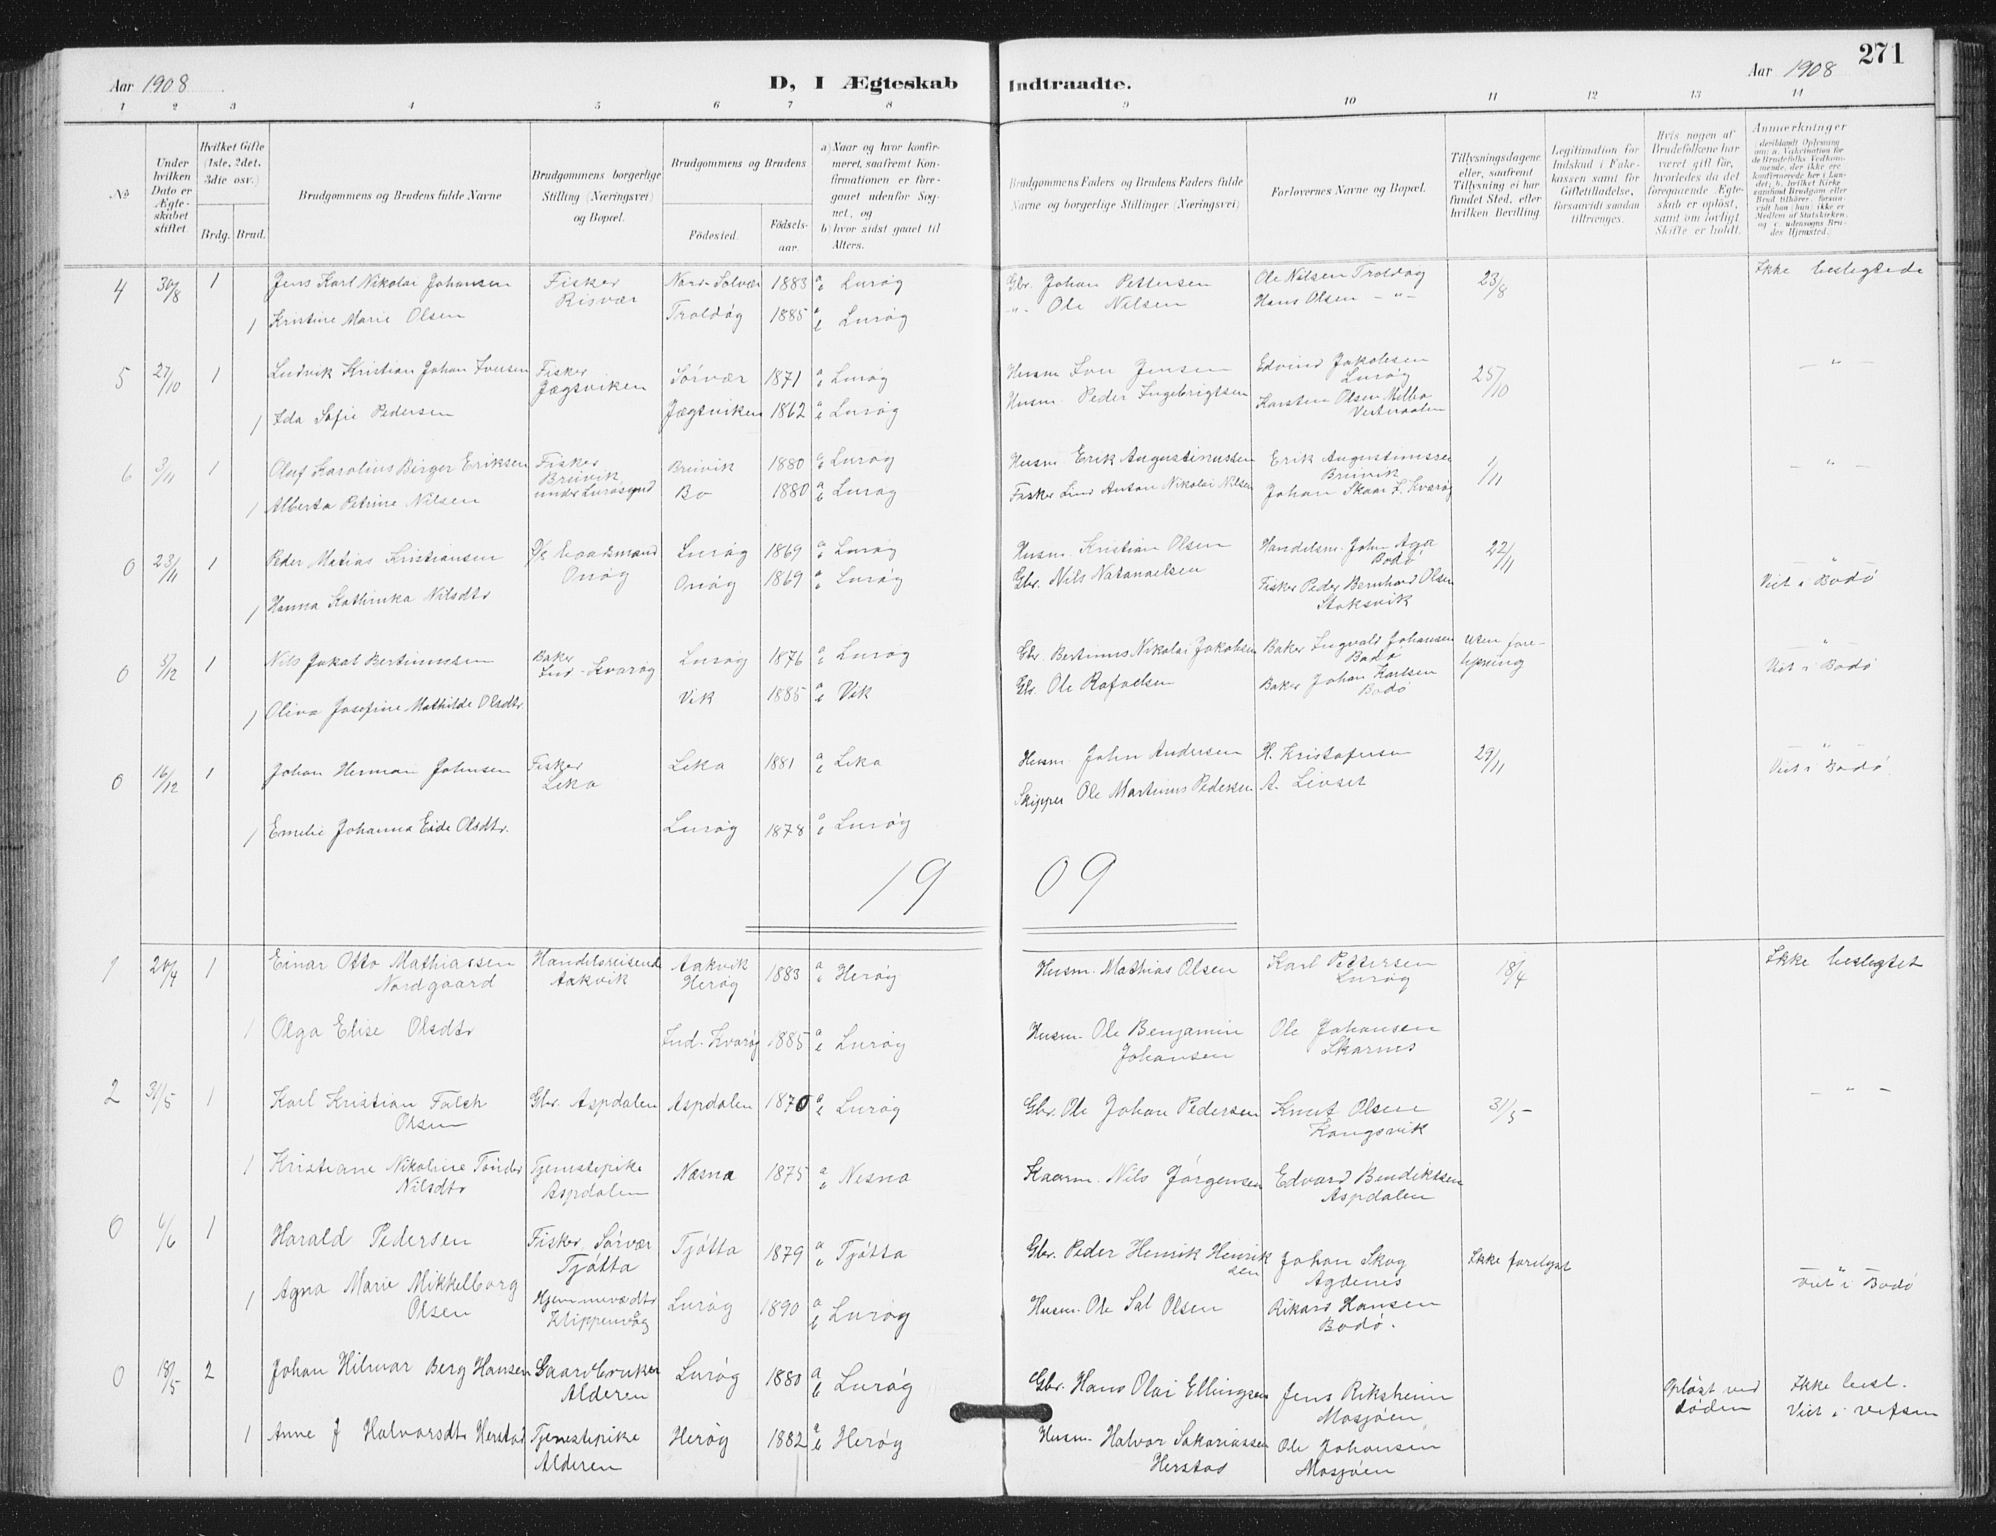 271
Aar 1908
D, I Ægteskab Indtraadte.
Aar 1908
1 2 3 4 5 6 7 8 9 10 11 12 13 14
No
Under hvilken Dato er Ægteskabet stiftet.
Hvilket Gifte (1ste, 2det, 3die osv.)
Brdg. Brud.
Brudgommens og Brudens fulde Navne
Brudgommens borgerlige Stilling (Næringsvei) og Bopæl.
Brudgommens og Brudens
Fødested.
Fødselsaar.
a) Naar og hvor konfirmeret, saafremt Konfirmationen er foregaaet udenfor Sognet, og
b) hvor sidst gaaet til Alters.
Brudgommens Faders og Brudens Faders fulde Navne og borgerlige Stillinger (Næringsvei)
Forlovernes Navne og Bopæl.
Tillysningsdagene eller, saafremt Tillysning ei har fundet Sted, efter hvilken Bevilling
Legitimation for Indskud i Enkekassen samt for Giftetilladelse, forsaavidt saadan tiltrænges.
Hvis nogen af Brudefolkene har været gift før, hvorledes da det foregaaende Ægteskab er opløst, samt om lovligt Skifte er holdt.
Anmerkninger
4 30/8 1 Jens Karl Nikolai Johansen Fisker Risvær Nord-Solvær 1883 a b Lurøy Gbr. Johan Pettersen Ole Nilsen Troldøy 23/8 Ikke beslegtede
1 Kristine Marie Olsen Troldøy 1885 a b Lurøy -"- Ole Nilsen Hans Olsen -"-
5 27/10 1 Ludvik Kristian Johan Iversen Fisker Jægtsviken Sørvær 1871 a b Lurøy Husm. Iver Jensen Edvind Jakobsen Lurøy 25/10 -"-
1 Ida Sofie Pedersen Jægtsviken 1862 a b Lurøy Husm. Peder Ingebrigtsen Karsten Olsen Melbo Vesteraalen
6 3/11 1 Oluf Karolius Birger Eriksen Fisker Breivik under Lurøsund Breivik 1880 a b Lurøy Husm. Erik Augustinussen Erik Augustinussen Breivik 1/11 -"-
1 Alberta Petrine Nilsen Bo 1880 a b Lurøy Fisker Lind Anton Nikolai Nilsen Johan Skaar I. Kvarøy
0 23/11 1 Peder Matias Kristiansen Baadsmand Onøy Lurøy 1869 a b Lurøy Husm. Kristian Olsen Handelsm. John Aga Bodø 22/11 "
1 Hanna Kathinka Nilsdtr Onøy 1869 a b Lurøy Gbr. Nils Natanaelsen Fisker Peder Bernhard Olsen Stoksvik Viet i Bodø
0 5/12 1 Nils Jakob Bertinussen Baker Ind-Kvarøy Lurøy 1876 a b Lurøy Gbr. Bertinus Nikolai Jakobsen Baker Ingvald Johansen Bodø Uten forelysning -"-
1 Oliva Josefine Mathilde Olsdtr. Vik 1885 a b Vik Gbr. Ole Rafaelsen Baker Johan Karlsen Bodø Viet i Bodø
0 16/12 1 Johan Herman Johnsen Fisker Leka Leka 1881 a b Leka Husm. John Andersen H. Kristofersen 29/11 -"- Viet i Bodø
1 Emelie Johanna Eide Olsdtr. Lurøy 1878 a b Lurøy Skipper Ole Martinus Pedersen A. Livset
1909
1 20/4 1 Einar Otto Mathiassen Nordgaard Handelsreisende Aakvik Aakvik Herøy 1883 a b Herøy Husm. Mathias Olsen Karl Pettersen Lurøy 18/4 Ikke beslegtet
1 Olga Elise Olsdtr Ind-Kvarøy 1885 a b Lurøy Husm. Ole Benjamin Johansen Ole Johansen Skarnes
2 31/5 1 Karl Kristian Falch Olsen Gbr. Aspdalen Aspdalen 1870 a b Lurøy Gbr. Ole Johan Pedersen Knut Olsen Kongsvik 31/5 - -"-
1 Kristiane Nikoline Tønder Nilsdtr Tjenestepike Aspdalen Næsna 1875 a b Nesna Kaarm. Nils Jørgensen Edvard Bendiktsen Aspdalen
0 6/6 1 Harald Pedersen Fisker Sørvær Tjøtta Tjøtta 1879 a b Tjøtta Gbr. Peder Henrik Henriksen Johan Skog Agdenes Ikke forelyst "
1 Agna Marie Mikkelborg Olsen Hjemmeværdtr Klippenvåg Lurøy 1890 a b Lurøy Husm. Ole Sal Olsen Rikard Hansen Bodø. Viet i Bodø
0 18/5 2 Johan Hilmar Berg Hansen Gaardbruker Alderen Lurøy 1880 a b Lurøy Gbr. Hans Olai Ellingsen Jens Riksheim Mosjøen Opløst ved døden Ikke besl. Viet i Vefsen
1 Anne J Halvorsdtr Herstad Tjenestepike Alderen Herøy 1882 a b Herøy Husm. Halvor Sakariassen Herstad Ole Johansen Mosjøen